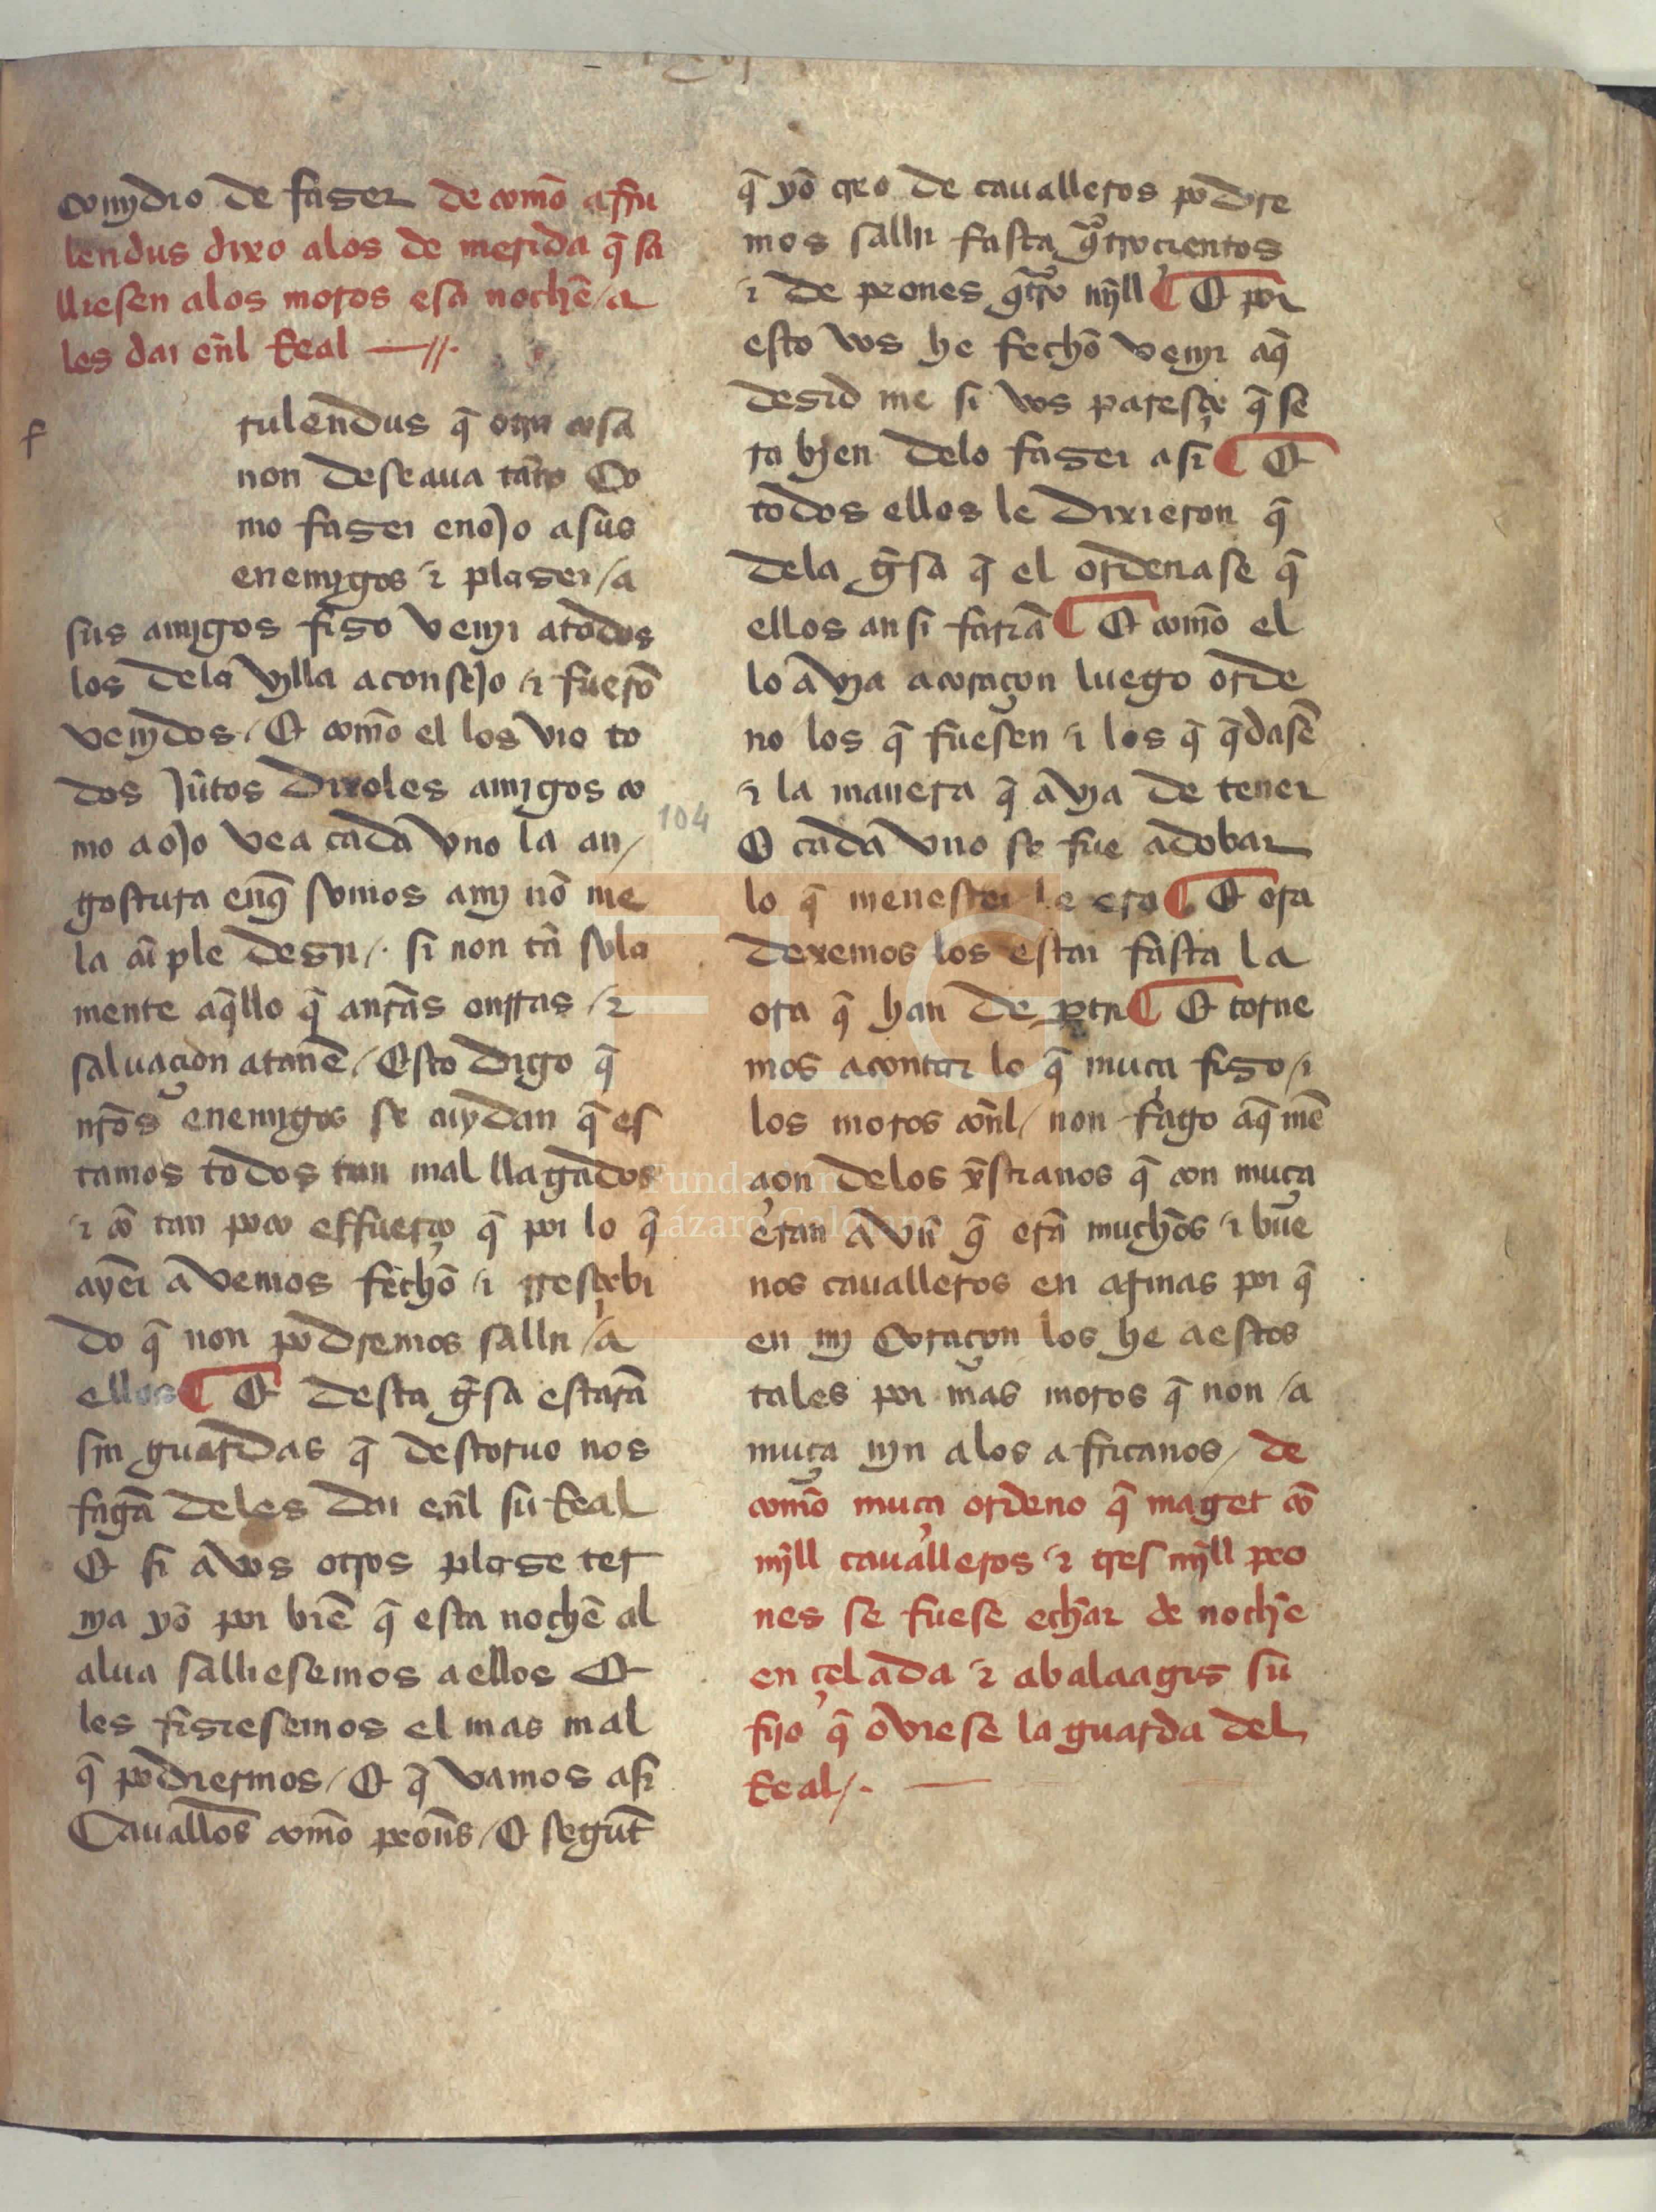 comydio de faser de commo afru
lendus dixo alos de merida q̃ sa
lliesen alos moros esa noche / a
les dar en̄l Real —//.
f
rulendus q̃ otra cosa
non deseaua tanto Co
mo faser enojo a sus
enemigos ⁊ plaser / a
sus amigos fiso venir a todos
los dela villa a consejo ⁊ fuerō
venidos / Et com̄o el los vio to
dos jūtos dixoles amigos co
mo a ojo vea cada vno la an /
gostura enq̃ somos amy nō me
la cū ple desir /. si non tā sola
mente aq̃llo q̃ anr̄as onrras / ⁊
saluaçion atanē / Esto digo q̃
nr̄os enemigos se cuydan q̃ es
tamos todos tan mal llagados
⁊ cō tan poco effuerço q̃ por lo q̃
ayer avemos fecho ⁊ rresçebi
do q̃ non podremos sallir / a
ellos ¶ Et desta g̃sa estarā
sin guardas q̃ destoruo nos
fagā deles dar en̄l su Real
Et si avos otros plase ter
nia yo por biē q̃ esta noche al
alua salliesemos a ellos Et
les fisiesemos el mas mal
q̃ podiermos / Et q̃ vamos asi
Cauallōs com̄o peon̄s / Et segūt
104
q̃ yo creo de caualleros podre
mos sallir fasta q̃trocientos
⁊ de peones q̃tro mjll ¶ Et por
esto vos he fecho venir aq̃
desid me si vos paresçe q̃ se
ra bien delo faser asi ¶ Et
todos ellos le dixieron q̃
dela g̃sa q̃ el ordenase q̃
ellos ansi fariā ¶ Et com̄o el
lo avia a coraçon luego orde
no los q̃ fuesen ⁊ los q̃ q̃dasē
⁊ la manera q̃ avia de tener
E cada vno se fue adobar
lo q̃ menester le era ¶ Et ora
dexemos los estar fasta la
ora q̃ han de ꝑtir ¶ Et torne
mos a contar lo q̃ muça fiso / ⁊
los moros con̄l / non fago aq̃ mē
çion delos xr̄stianos q̃ con muça
eran avn̄ q̃ erā muchos ⁊ bue
nos caualleros en armas por q̃
en mj Coraçon los he a estos
tales por mas moros q̃ non / a
muça njn alos africanos / de
com̄o muça ordeno q̃ maget cō
mjll caualleros ⁊ tres mjll peo
nes se fuese echar de noche
en çelada ⁊ abalaagis su
fijo q̃ oviese la guarda del
Real /. —